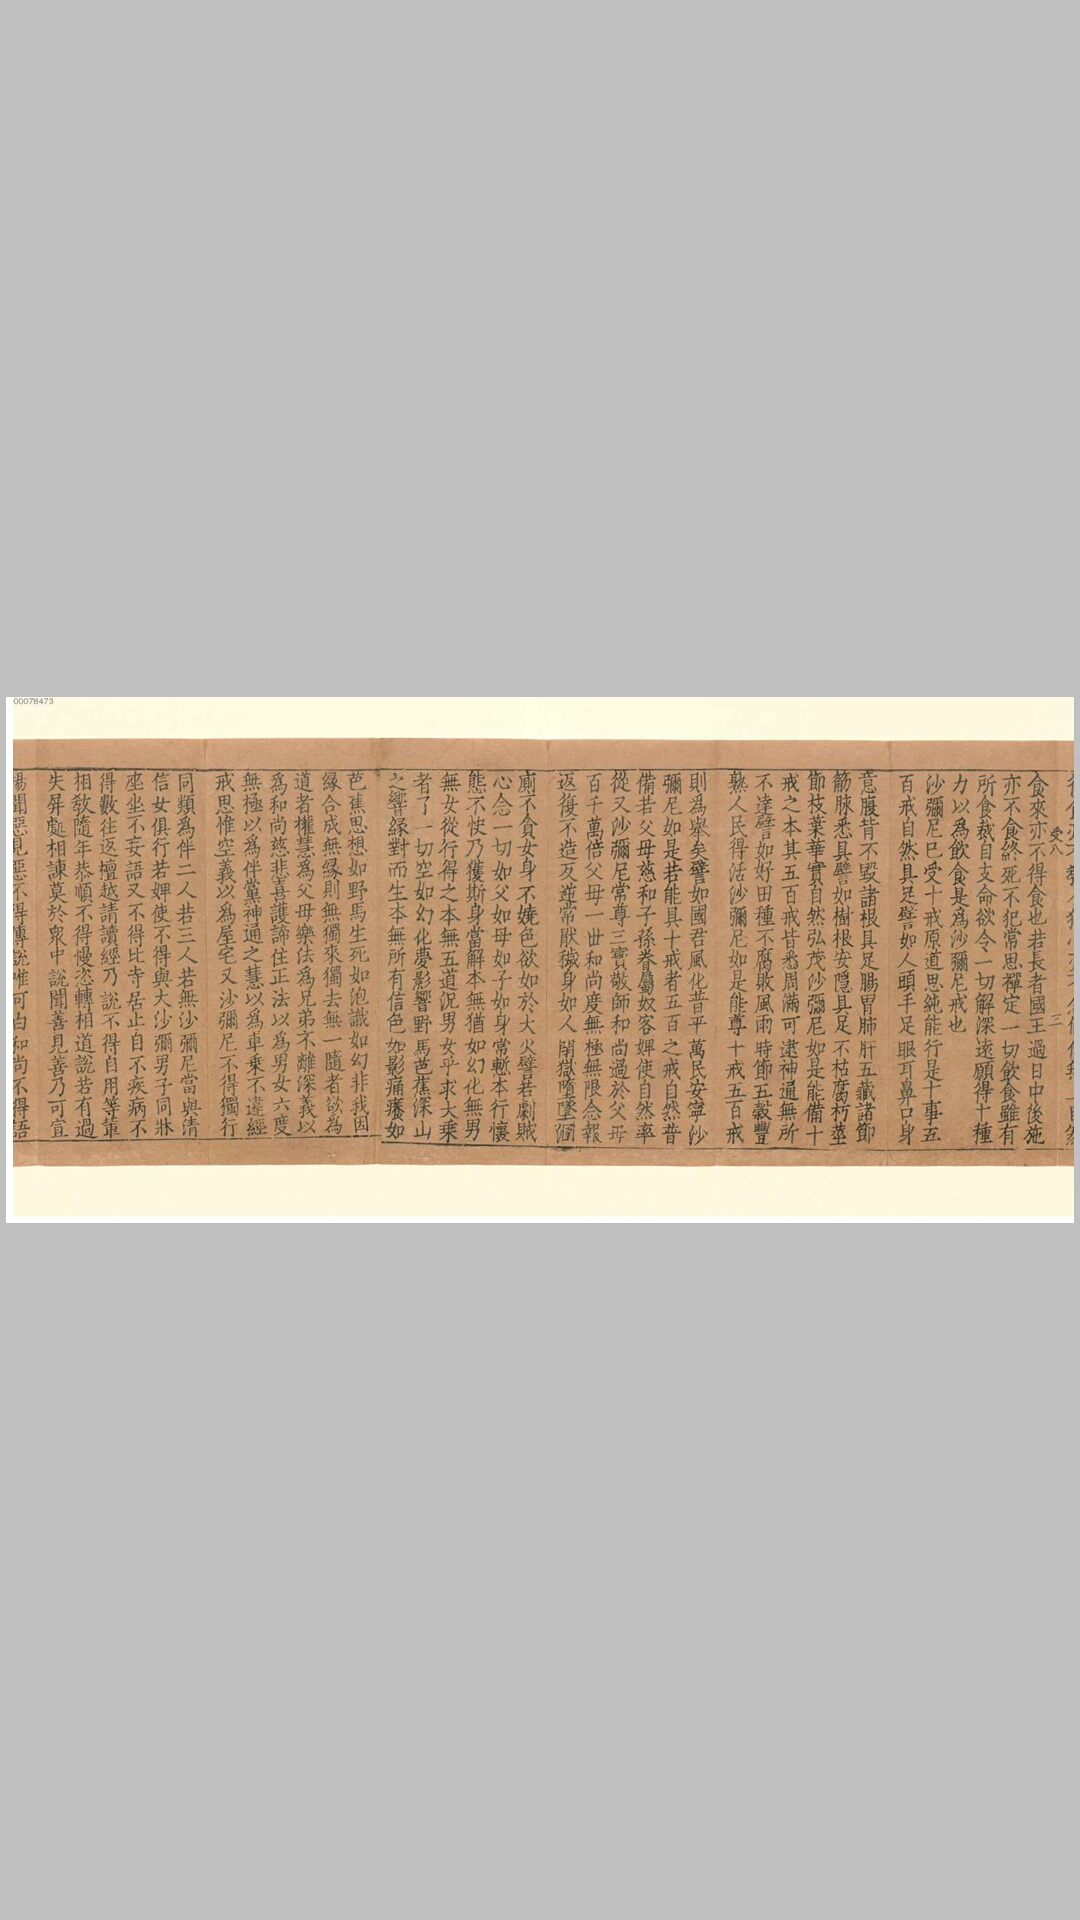 00078473
愛八
三
食來亦不得食也若長者國王過日中後施
亦不食終死不犯常思禪定一切飲食雖有
所食裁自支命欲令一切解深遠願得十種
力以為飲食是為沙彌尼戒也
沙彌尼已受十戒原道思純能行是十事五
百戒自然具足譬如人頭手足眼耳鼻口身
意腹背不毀諸根具足腸胃肺肝五藏諸節
筋脉悉具譬如樹根安隱具足不枯腐朽莖
節枝葉華實自然弘茂沙彌尼如是能備十
戒之本其五百戒皆悉周滿可逮神通無所
不達譬如好田種不腐敗風雨時節五穀豐
熟人民得活沙彌尼如是能尊十戒五百戒
則為舉矣譬如國君風化昔平萬民安寧沙
彌尼如是若能具十戒者五百之戒自然普
備若父母慈和子孫眷屬奴客婢使自然率
從又沙彌尼常尊三寶敬師和尚過於父母
百千萬倍父母一世和尚度無極無限念報
返復不造反逆常猒穢身如人閉獄墮墜溷
廁不貪女身不嬈色欲如於大火譬若劇賊
心念一切如父如母如子如身常慙本行懷
態不忮乃獲斯身當解本無猶如幻化無男
無女從行得之本無五道況男女乎求大乘
者了一切空如幻化夢影響野馬芭蕉深山
之響緣對而生本無所有信色如影痛癢如
芭蕉思想如野馬生死如泡識如幻非我因
緣合成無緣則無獨來獨去無一隨者欲為
道者權慧為父母樂法為兄弟不離深義以
為和尚慈悲喜護諦住正法以為男女六度
無極以為伴黨神通之慧以為車乘不違經
戒思惟空義以為屋宅又沙彌尼不得獨行
同類為伴二人若三人若無沙彌尼當與清
信女俱行若婢使不得與大沙彌男子同牀
座坐不妄語又不得比寺居止自不疾病不
得數往返檀越請讀經乃說不得自用等輩
相敎隨年恭順不得慢恣轉相道說若有過
失屏處相諫莫於衆中說聞善見善乃可宣
揚聞惡見惡不得傳說唯可白和尚不得語